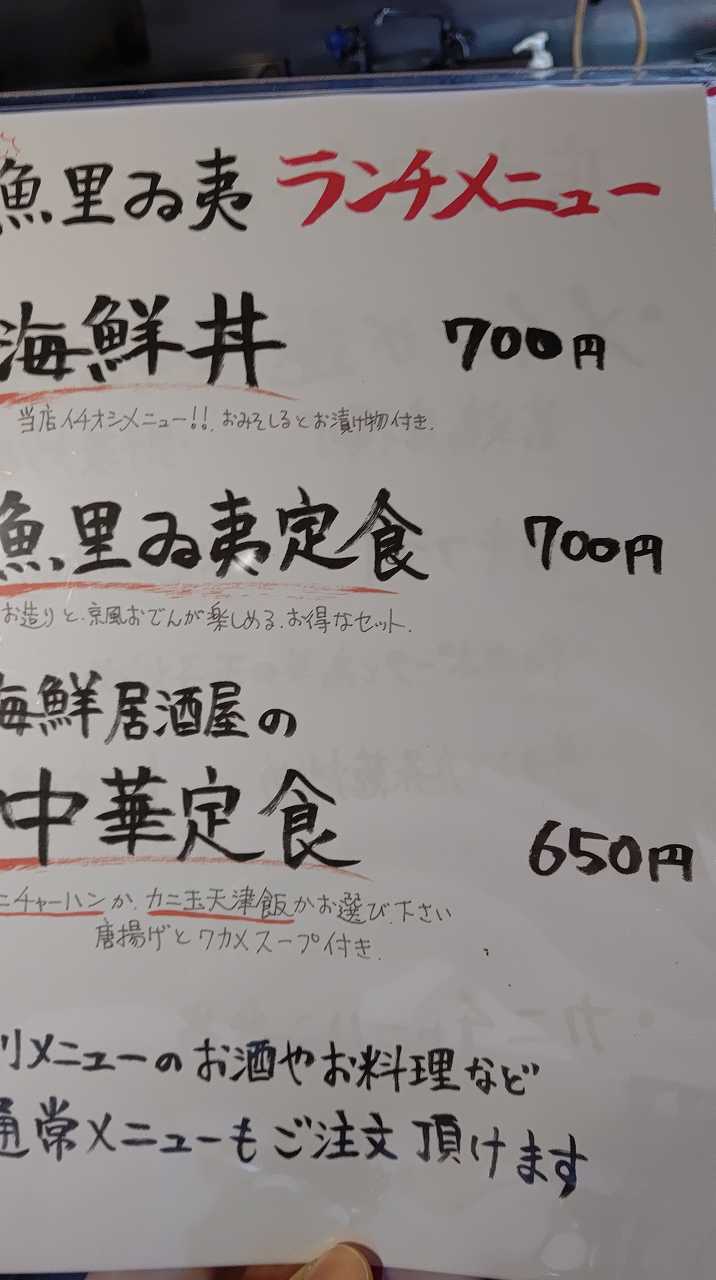 魚里ゐ夷 ランチメニュー
海鮮丼 700円
当店イチオシメニュー!!.おみそしるとお漬け物付き.
魚里ゐ夷定食 700円
お造りと.京風おでんが楽しめる.お得なセット.
海鮮居酒屋の
中華定食 650円
ニチャーハンか.カニ玉天津飯かお選び下さい
唐揚げとワカメスープ付き.
メニューのお酒やお料理など
通常メニューもご注文頂けます